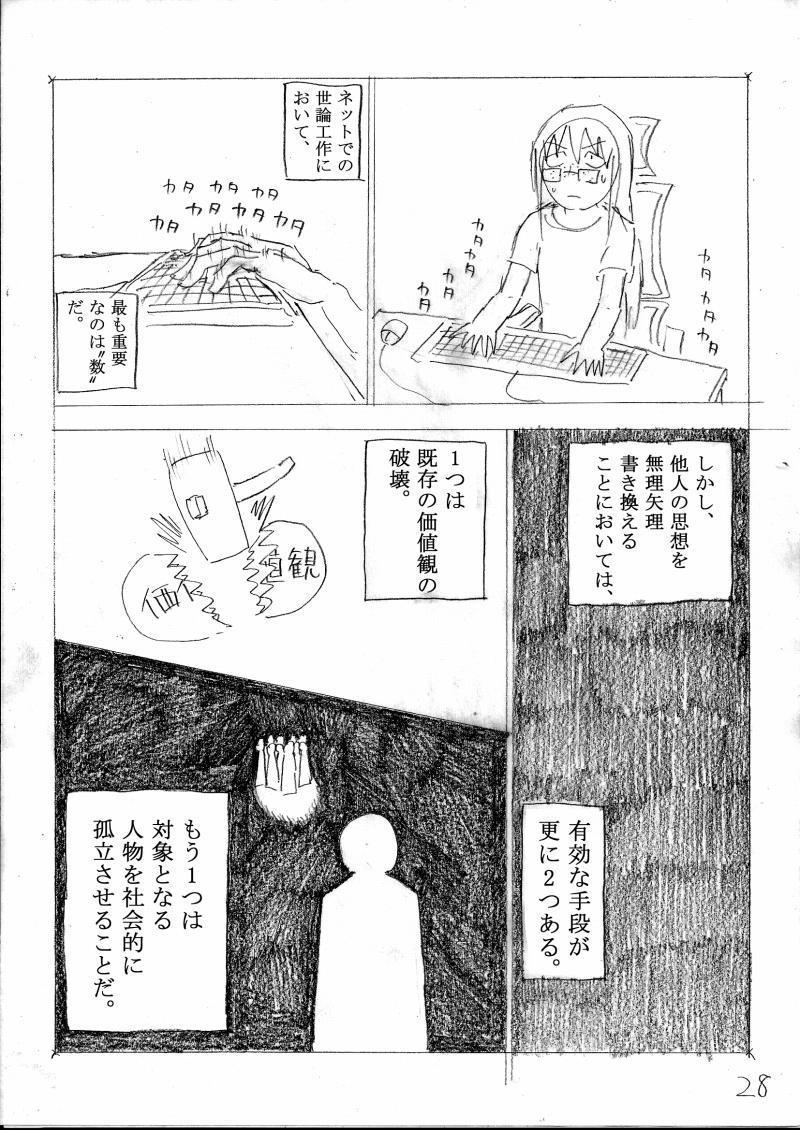 カタ
カタ
カタ
カタ
カタ
カタ
カタ
カタ
ネットでの
世論工作に
おいて、
カタ
カタ
カタ
カタ
カタ
カタ
カタ
最も重要
なのは〝数〟
だ。
しかし、
他人の思想を
無理矢理
書き換える
ことにおいては、
有効な手段が
更に2つある。
1つは
既存の価値観の
破壊。
価
観
もう1つは
対象となる
人物を社会的に
孤立させることだ。
28